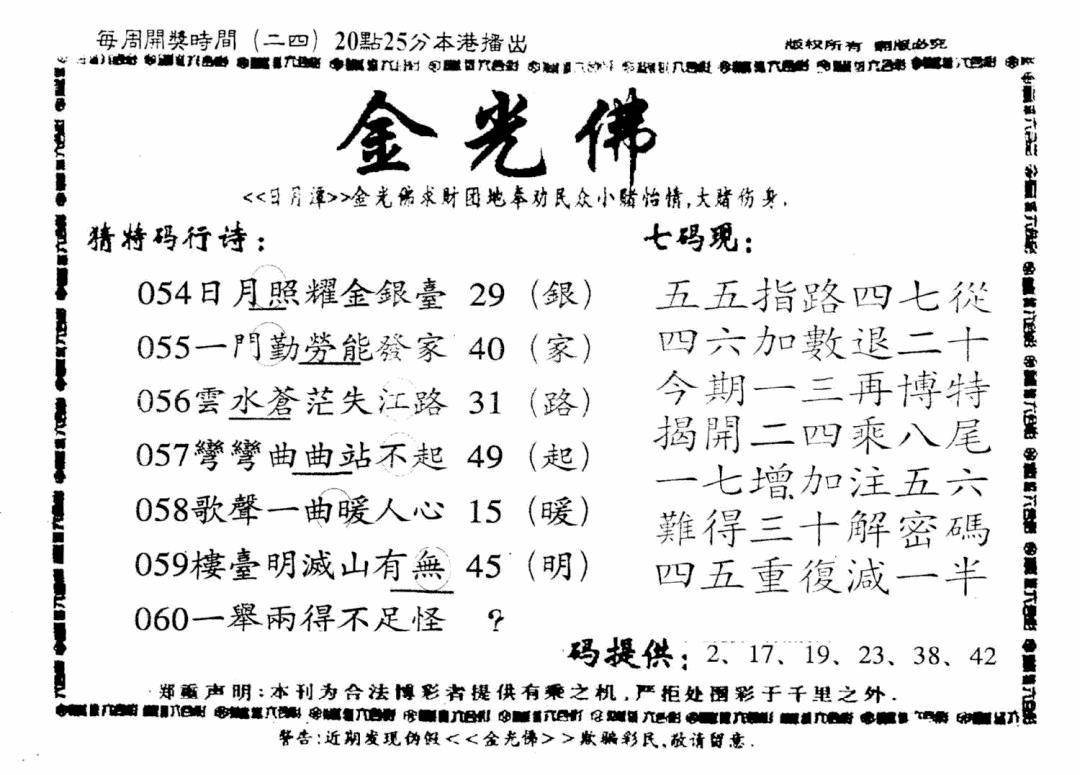 每周開獎時間（二四）20點25分本港播出
版权所有 翻版必究
金光佛
<<日月潭>>金光佛求财团地奉劝民众小赌怡情,大赌伤身.
猜特码行诗：
054日月照耀金銀臺 29（銀）
055一門勤勞能發家 40（家）
056雲水蒼茫失江路 31（路）
057彎彎曲曲站不起 49（起）
058歌聲一曲暖人心 15（暖）
059樓臺明滅山有無 45（明）
060一舉兩得不足怪 ？
七码现：
五五指路四七從
四六加數退二十
今期一三再博特
揭開二四乘八尾
一七增加注五六
難得三十解密碼
四五重復減一半
码提供：2、17、19、23、38、42
郑重声明:本刊为合法博彩者提供有乘之机,严拒处围彩于千里之外.
警告:近期发现伪假<<金光佛>>欺骗彩民,敬请留意.